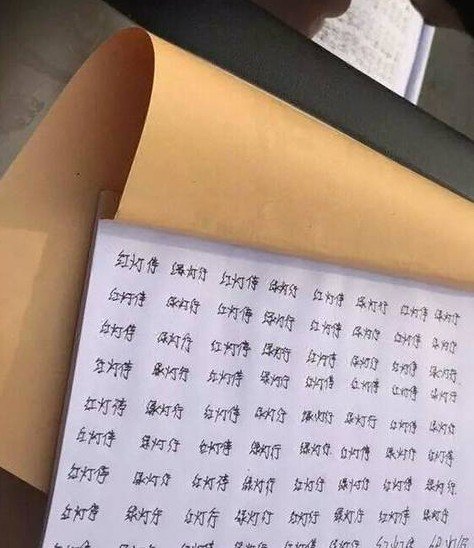 红灯停 绿灯行 红灯停 绿灯行 红灯停 绿灯行 红灯停 绿灯行
红灯停 绿灯行 红灯停 绿灯行 红灯停 绿灯行 红灯停 绿灯行
红灯停 绿灯行 红灯停 绿灯行 红灯停 绿灯行 红灯停 绿灯行
红灯停 绿灯行 红灯停 绿灯行 红灯停 红灯停 红灯停 绿灯行
红灯停 绿灯行 红灯停 绿灯行 绿灯行 绿灯行 红灯停 绿灯行
红灯停 绿灯行 红灯停 绿灯行 绿灯行 红灯停 绿灯行 红灯停
红灯停 绿灯行 红灯停 绿灯行 红灯停 绿灯行 红灯停 绿灯行
红灯停 绿灯行 红灯停 绿灯行 绿灯行 红灯停 绿灯行